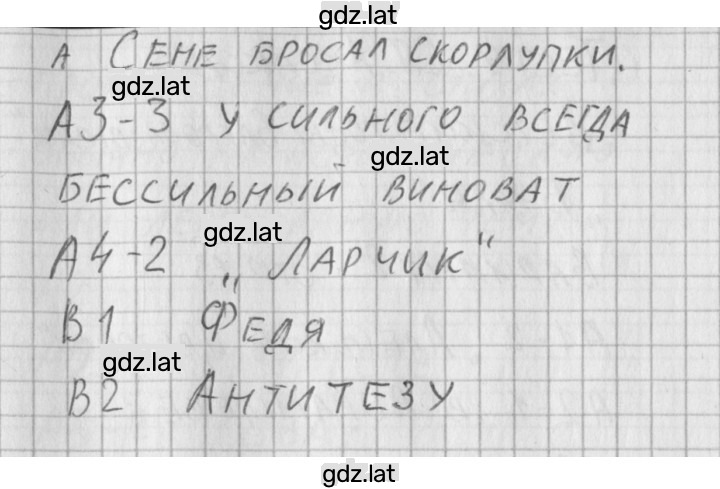 gdz.lat
А СЕНЕ БРОСАЛ СКОРЛУПКИ.
gdz.lat
А3-3 У СИЛЬНОГО ВСЕГДА
gdz.lat
БЕССИЛЬНЫЙ ВИНОВАТ
gdz.lat
А4-2 „ЛАРЧИК"
В1 ФЕДЯ
gdz.lat
В2 АНТИТЕЗУ
gdz.lat